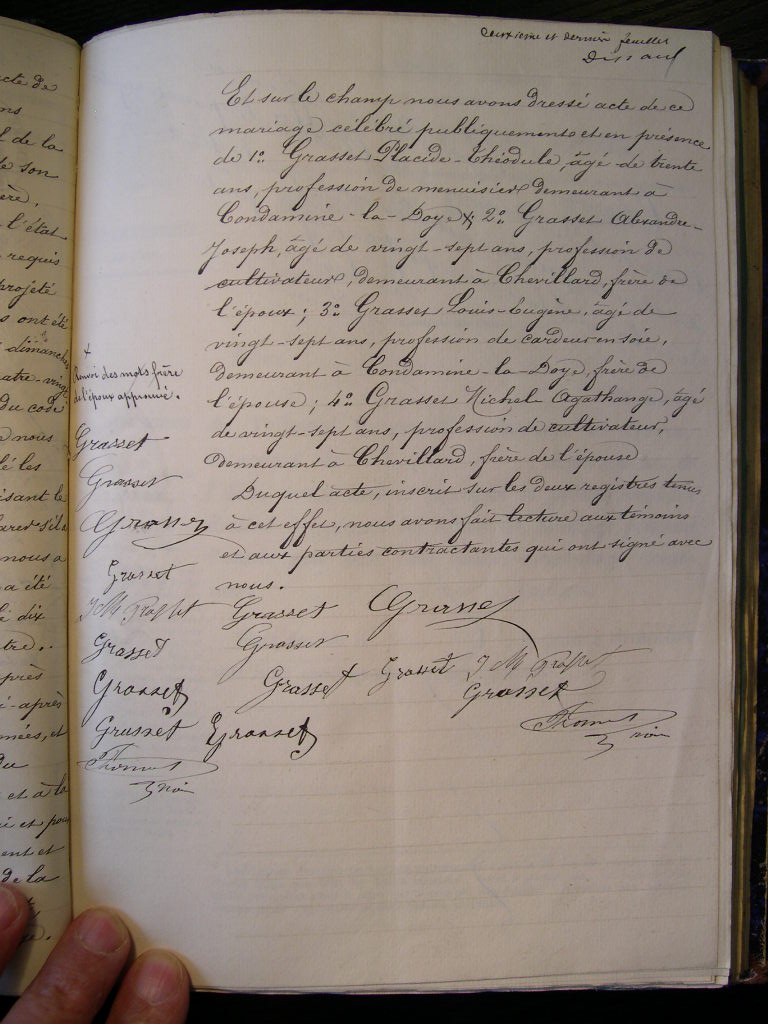 deuxième et dernier feuillet
acte de
de la
de son
l'état
requis
projeté
s ont été
dimanche
atre-vingt
du code
nous
é les
isant le
nous a
a été
é dix
près
i-après
mées, et
du
et à la
i et pour
ent et
de la
Et sur le champ nous avons dressé acte de ce
mariage célébré publiquement et en présence
de 1º Grasset Placide-Théodule, âgé de trente
ans, profession de menuisier demeurant à
Condamine-la-Doye x; 2º Grasset Alexandre-
Joseph, âgé de vingt-sept ans, profession de
cultivateur, demeurant à Chevillard, frère de
l'époux; 3º Grasset Louis-Eugène, âgé de
vingt-sept ans, profession de cardeur en soie,
demeurant à Condamine-la-Doye, frère de
l'épouse; 4º Grasset Michel Agathange, âgé
de vingt-sept ans, profession de cultivateur,
demeurant à Chevillard, frère de l'épouse
Duquel acte, inscrit sur les deux registres tenus
à cet effet, nous avons fait lecture aux témoins
et aux parties contractantes qui ont signé avec
nous.
x
Renvoi des mots frère
de l'époux approuvé.
Grasset
Grasset
Grasset
Grasset
Grasset
Grasset
Grusset
Thomas
Grasset
Grasset
Grasset Grasset
Grasset
Grasset
Thomas